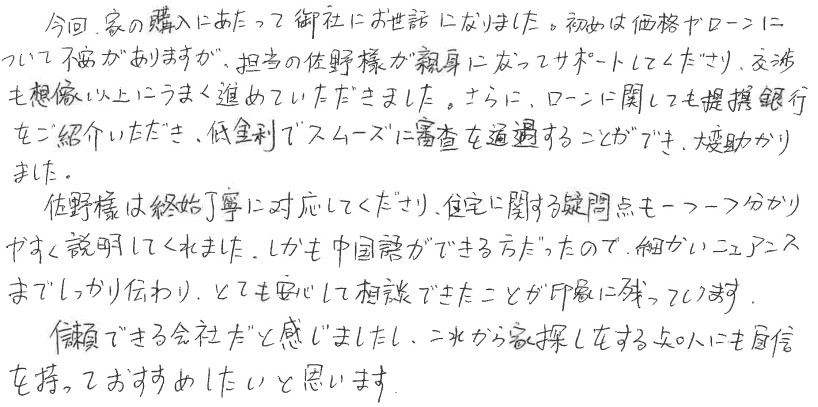 今回、家の購入にあたって御社にお世話になりました。初めは価格やローンに
ついて不安がありますが、担当の佐野様が親身になってサポートしてくださり、交渉
も想像以上にうまく進めていただきました。さらに、ローンに関しても提携銀行
をご紹介いただき、低金利でスムーズに審査を通過することができ、大変助かり
ました。
佐野様は終始丁寧に対応してくださり、住宅に関する疑問点も一つ一つ分かり
やすく説明してくれました。しかも中国語ができる方だったので、細かいニュアンス
までしっかり伝わり、とても安心して相談できたことが印象に残っています。
信頼できる会社だと感じましたし、これから家探しをする知人にも自信
を持っておすすめしたいと思います。